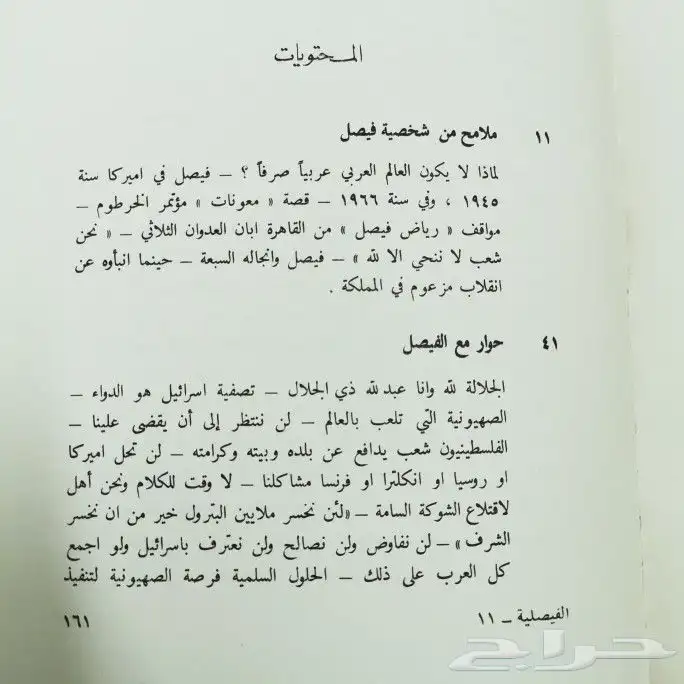 المحتويات
١١ ملامح من شخصية فيصل
لماذا لا يكون العالم العربي عربياً صرفاً ؟ – فيصل في اميركا سنة
١٩٤٥ ، وفي سنة ١٩٦٦ – قصة « معونات » مؤتمر الخرطوم –
مواقف « رياض فيصل » من القاهرة ابان العدوان الثلاثي – « نحن
شعب لا ننحي الا لله » – فيصل وانجاله السبعة – حينما انبأوه عن
انقلاب مزعوم في المملكة .
٤١ حوار مع الفيصل
الجلالة لله وانا عبد لله ذي الجلال – تصفية اسرائيل هو الدواء –
الصهيونية التي تلعب بالعالم – لن ننتظر إلى أن يقضى علينا –
الفلسطينيون شعب يدافع عن بلده وبيته وكرامته – لن تحل اميركا
او روسيا او انكلترا او فرنسا مشاكلنا – لا وقت للكلام ونحن أهل
لاقتلاع الشوكة السامة – «لئن نخسر ملايين البترول خير من ان نخسر
الشرف » – لن نفاوض ولن نصالح ولن نعترف باسرائيل ولو اجمع
كل العرب على ذلك – الحلول السلمية فرصة الصهيونية لتنفيذ
الفيصلية – ١١ ١٦١
حراج